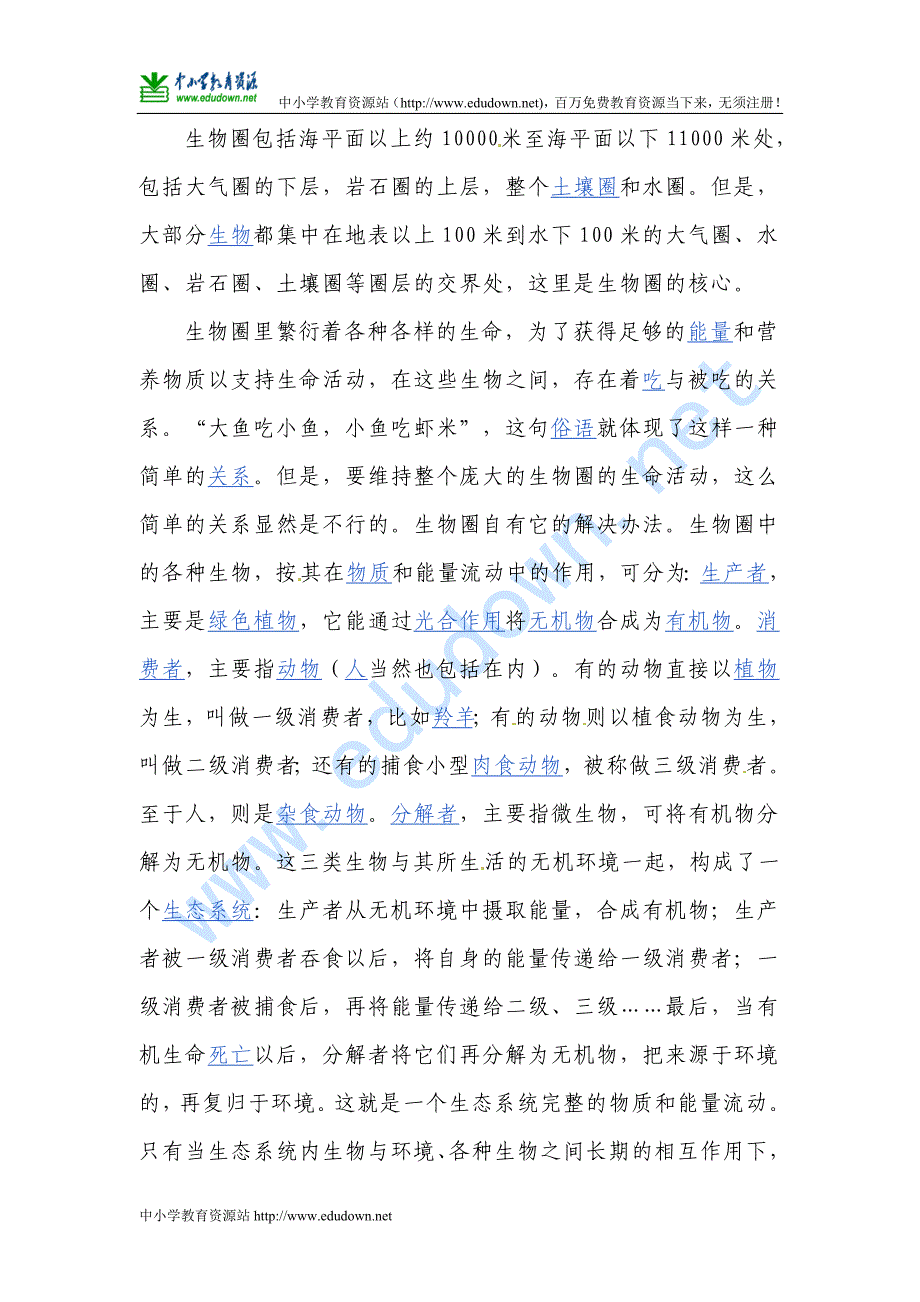 中小学教育资源
www.edudown.net
中小学教育资源站(http://www.edudown.net),百万免费教育资源当下来,无须注册!
生物圈包括海平面以上约10000米至海平面以下11000米处,
包括大气圈的下层,岩石圈的上层,整个土壤圈和水圈。但是,
大部分生物都集中在地表以上100米到水下100米的大气圈、水
圈、岩石圈、土壤圈等圈层的交界处,这里是生物圈的核心。
生物圈里繁衍着各种各样的生命,为了获得足够的能量和营
养物质以支持生命活动,在这些生物之间,存在着吃与被吃的关
系。“大鱼吃小鱼,小鱼吃虾米”,这句俗语就体现了这样一种
简单的关系。但是,要维持整个庞大的生物圈的生命活动,这么
简单的关系显然是不行的。生物圈自有它的解决办法。生物圈中
的各种生物,按其在物质和能量流动中的作用,可分为:生产者,
主要是绿色植物,它能通过光合作用将无机物合成为有机物。消
费者,主要指动物(人当然也包括在内)。有的动物直接以植物
为生,叫做一级消费者,比如羚羊;有的动物则以植食动物为生,
叫做二级消费者;还有的捕食小型肉食动物,被称做三级消费者。
至于人,则是杂食动物。分解者,主要指微生物,可将有机物分
解为无机物。这三类生物与其所生活的无机环境一起,构成了一
个生态系统:生产者从无机环境中摄取能量,合成有机物;生产
者被一级消费者吞食以后,将自身的能量传递给一级消费者;一
级消费者被捕食后,再将能量传递给二级、三级……最后,当有
机生命死亡以后,分解者将它们再分解为无机物,把来源于环境
的,再复归于环境。这就是一个生态系统完整的物质和能量流动。
只有当生态系统内生物与环境、各种生物之间长期的相互作用下,
www.edudown.net
中小学教育资源站 http://www.edudown.net